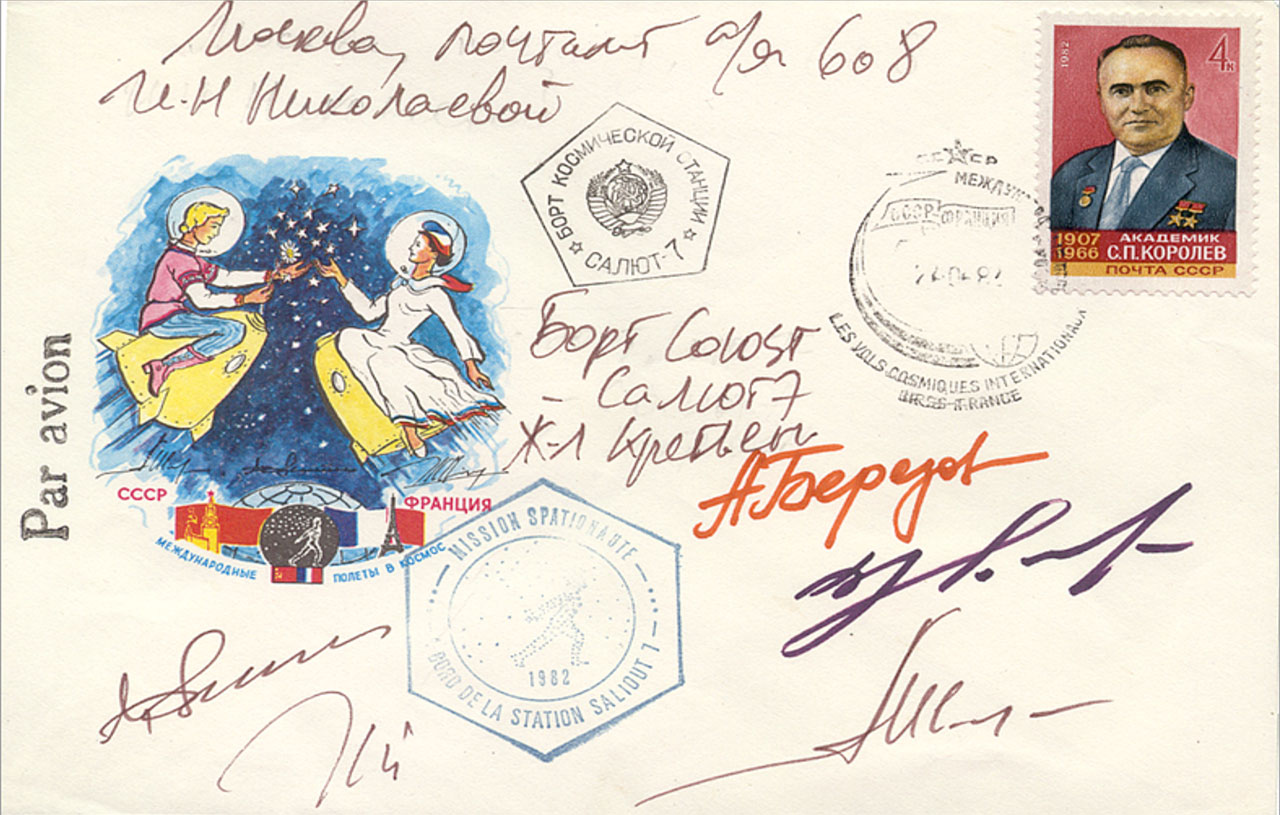 Москва, почтамт а/я 608
И.Н Николаевой
БОРТ КОСМИЧЕСКОЙ СТАНЦИИ
САЛЮТ-7
СССР
МЕЖДУНАРОД
СССР ФРАНЦИЯ
LES VOLS COSMIQUES INTERNATIONAUX
URSS-FRANCE
1982
4к
1907
1966
АКАДЕМИК
С.П.КОРОЛЕВ
ПОЧТА СССР
Par avion
Борт Союзт
- Салют7
Ж-Л Кретьен
А.Березов
СССР
ФРАНЦИЯ
МЕЖДУНАРОДНЫЕ ПОЛЕТЫ В КОСМОС
MISSION SPATIONAUTE
1982
BORD DE LA STATION SALIOUT 7